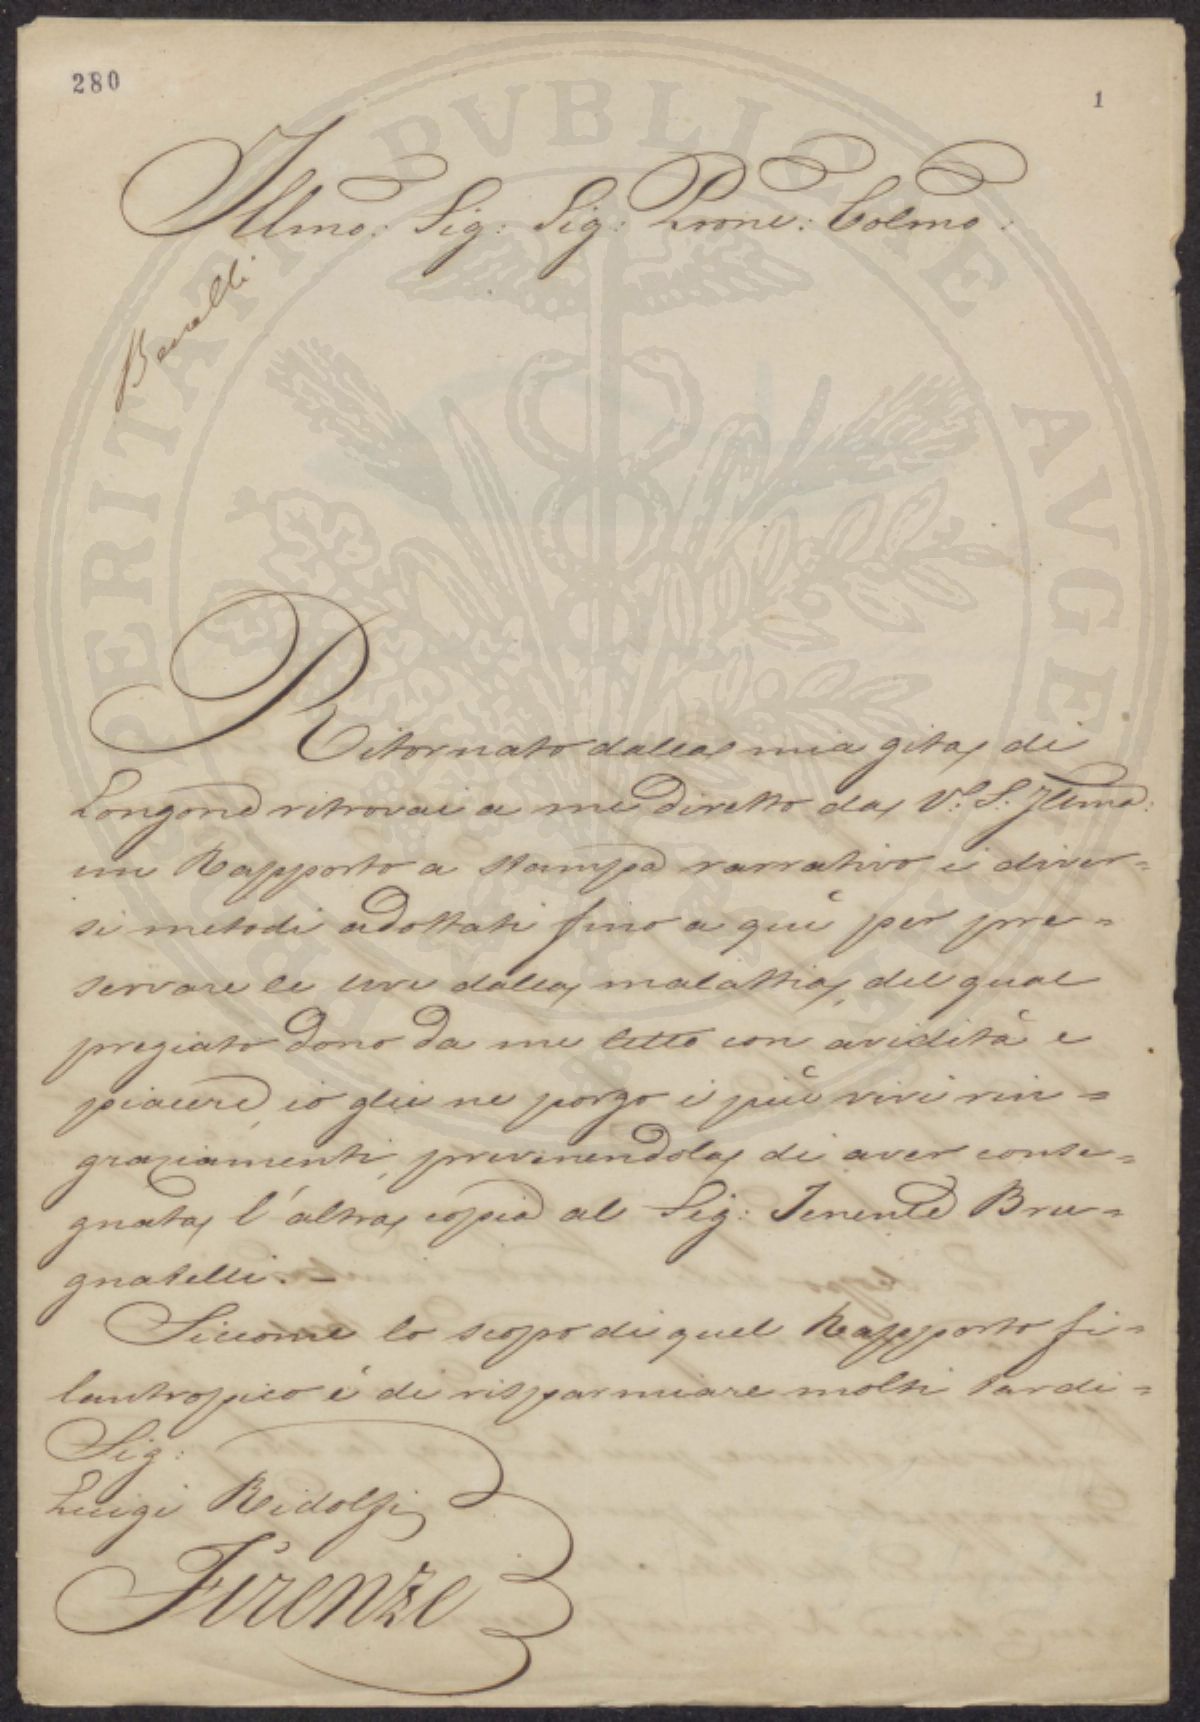 280
1
Illmo: Sig: Sig: Prone: Colmo:
Ritornato dalla mia gita di
Longone ritrovai a me diretto da V.S. Illma:
un Rapporto a stampa narrativo i diver=
si metodi adottati fino a quì per pre=
servare le uve dalla malattia, del qual
pregiato dono da me letto con avidità e
piacere, io glie ne porgo i più vivi rin=
graziamenti, prevenendola di aver conse=
gnata l'altra copia al Sig: Tenente Bru=
gnatelli. —
Siccome lo scopo di quel Rapporto fi=
lantropico è di risparmiare molti tardi=
Sig:
Luigi Ridolfi
Firenze
PROSPERITATI PVBLICAE AVGENDAE